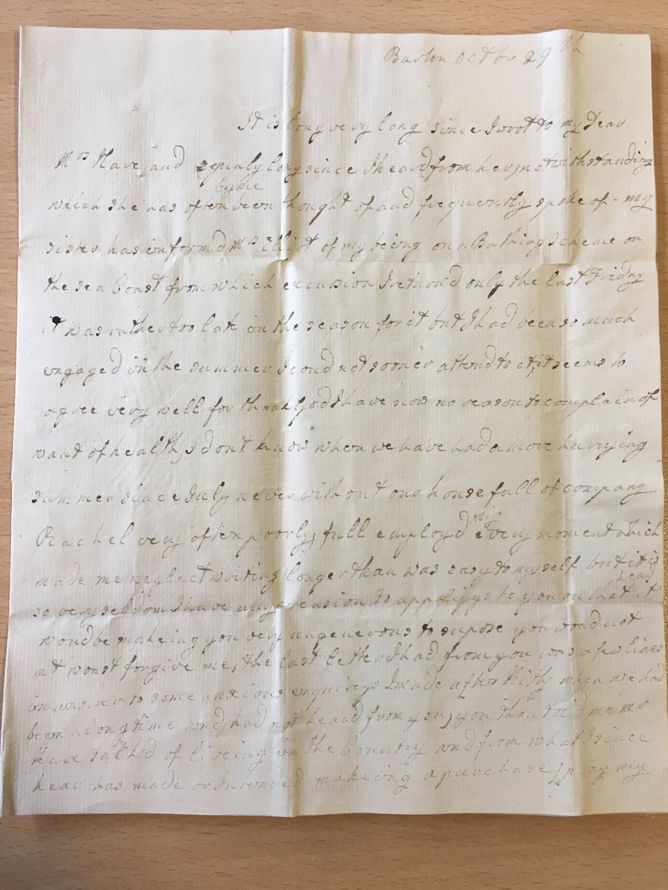 Barton Octbr 29th
It is long very long since I wrot to my Dear
Mrs Hare and equialy long since I heard from her, notwithstanding
by me
which she has often been thought of and frequently spoke of - my
sister has inform'd Mrs Elliot of my being on a Bathing Scheme on
the sea Coast from which excursion I return'd only the last Friday
it was rather too late in the season for it but I had been so much
engaged in the summer I coud not sooner attend to it, it seems to
agree very well for thank God I have now no reason to complain of
want of health, I dont know when we have had a more hurrying
summer since July never without our house full of company
Rachel very often poorly, full employd every moment which
made me neglect writing longer than was easy to myself but it is
head
so very seldom I have any occasion to appologise to you on that
woud be makeing you very ungenerous to supose you woud not
at worst forgive me, the last letter I had from you was a few lines
in answer to some anxious enquireys I made after Kitty when we had
been a long time and had not heard from you, you then told me Mr
Hare talk'd of liveing in the Country and from what I since
hear has made or intended makeing a purchase, pray my